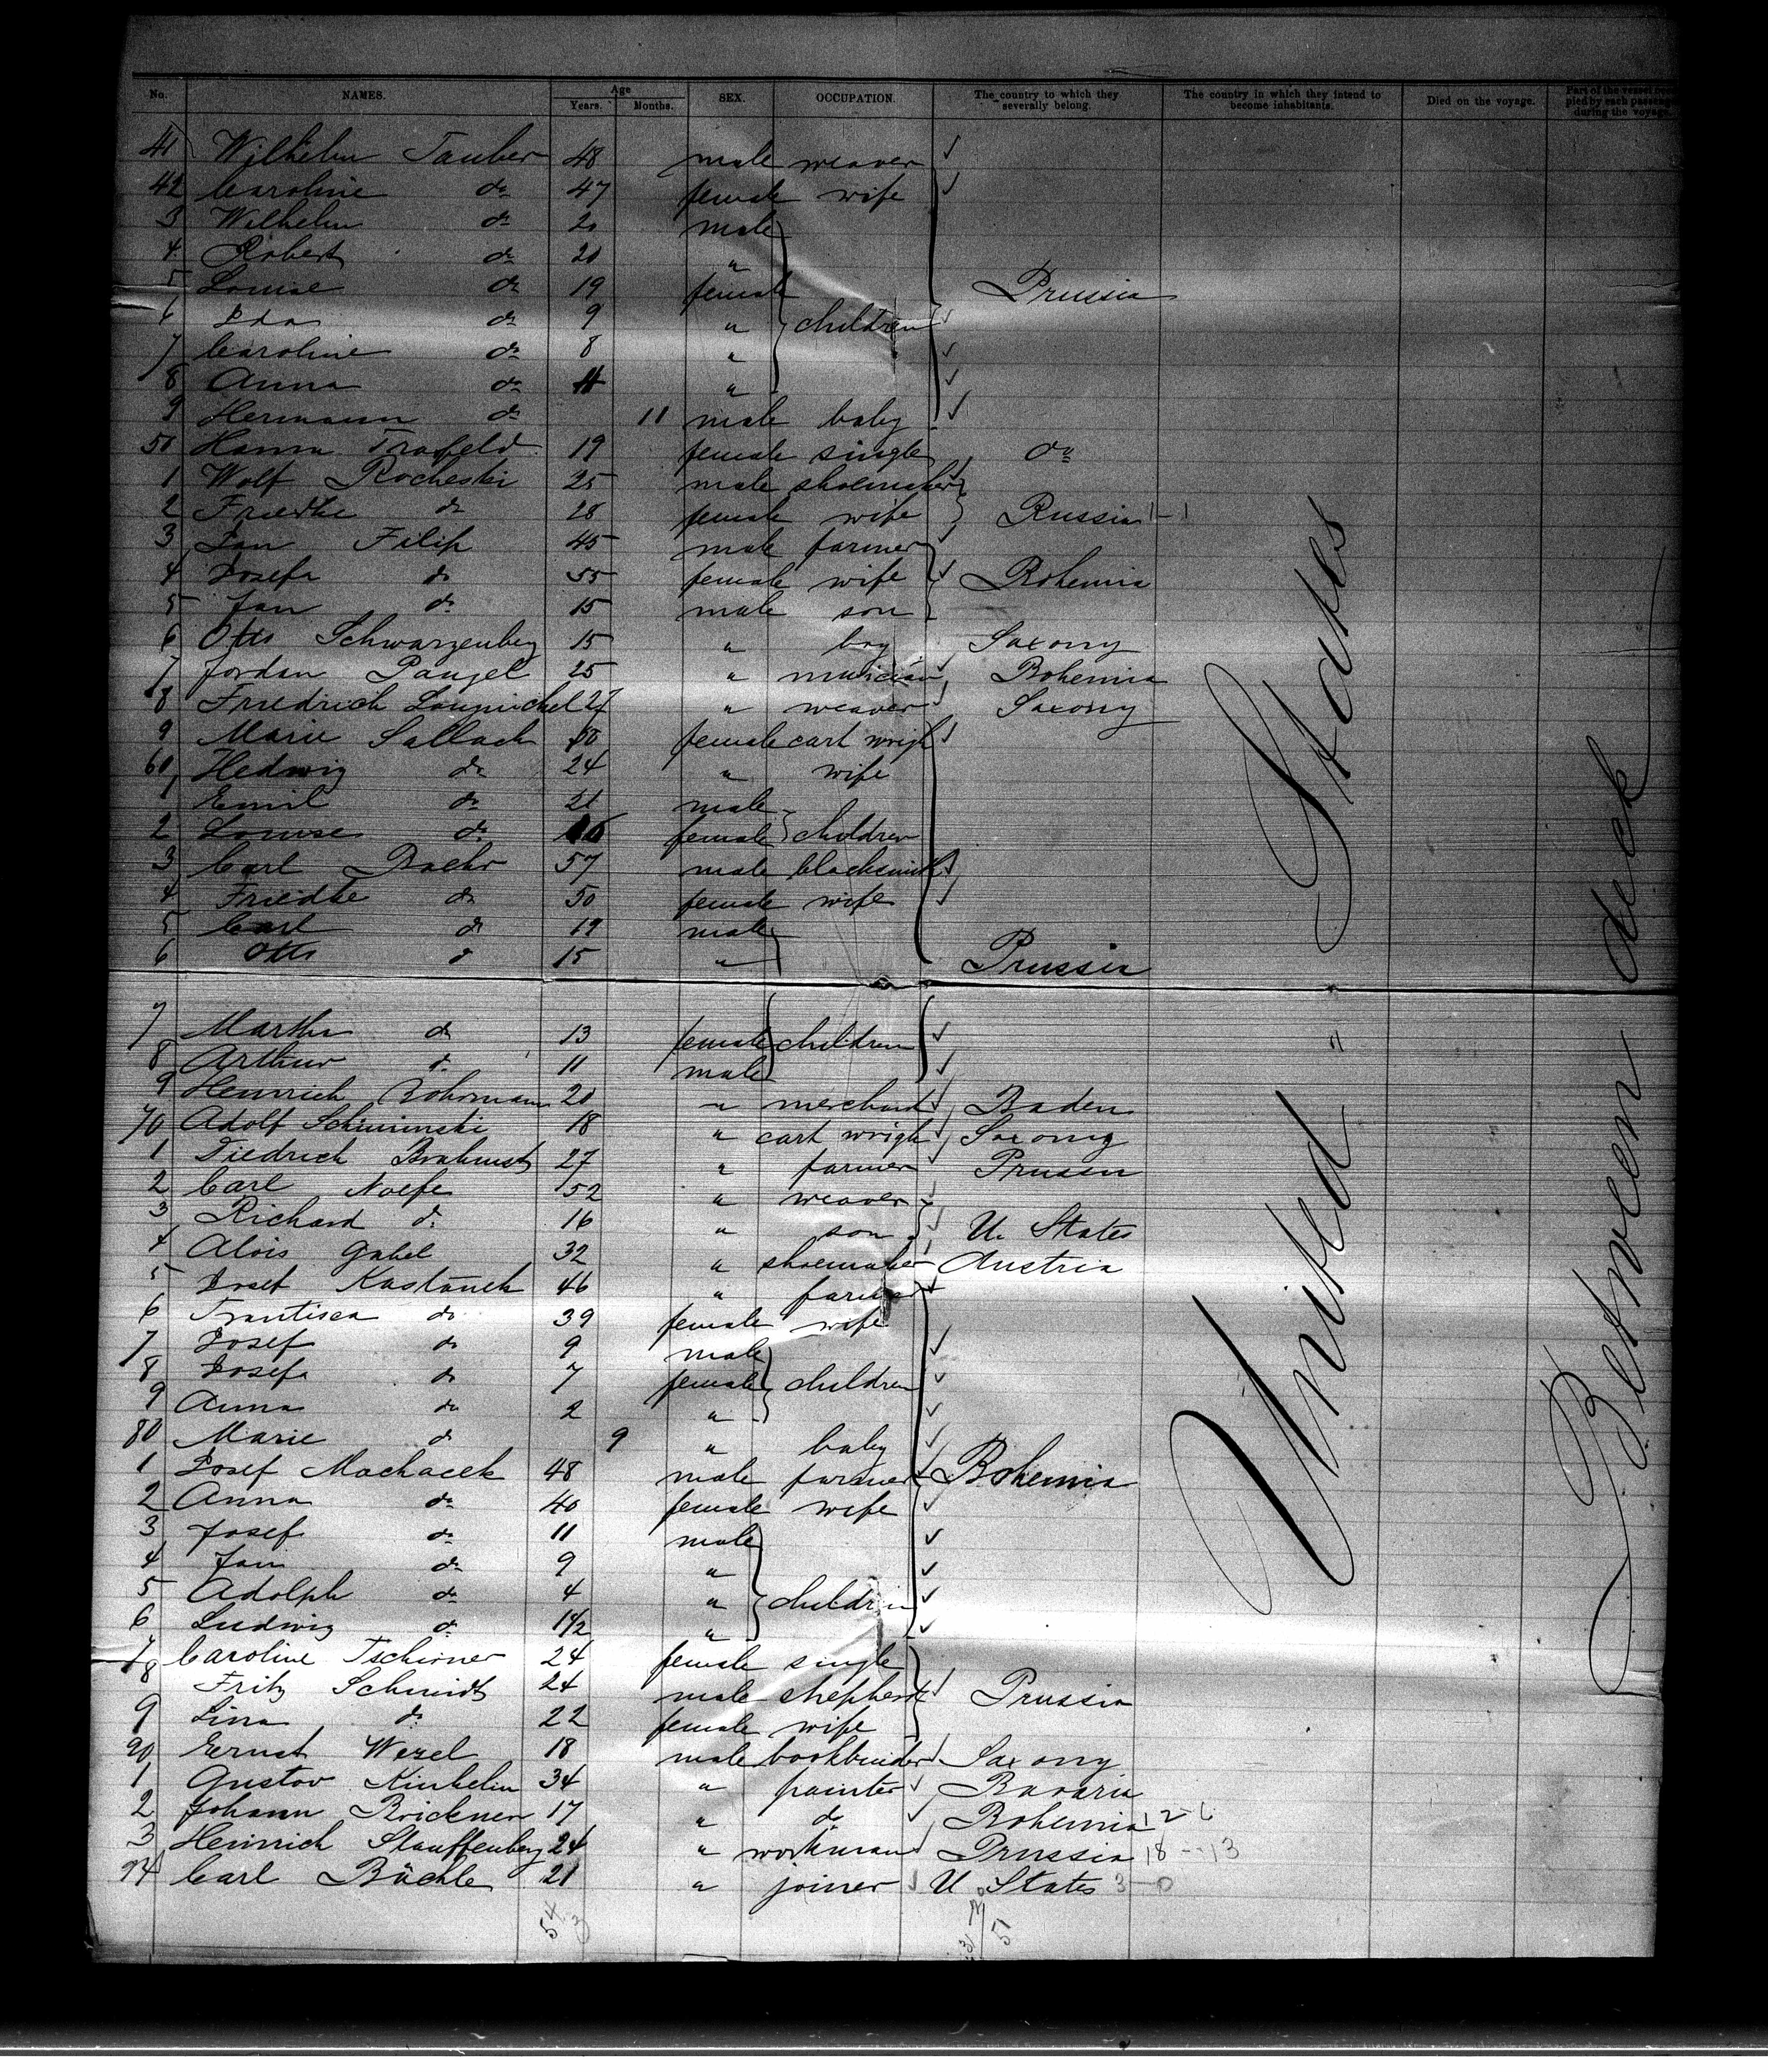 No. NAMES. Age Years. Months. SEX. OCCUPATION. The country to which they severally belong. The country in which they intend to become inhabitants. Died on the voyage. Part of the vessel occupied by each passenger during the voyage.
41 Wilhelm Tauber 48 male weaver
42 Caroline do 47 female wife
3 Wilhelm do 20 male
4 Robert do 20 "
5 Louise do 19 female Prussia
6 Ida do 9 " children
7 Caroline do 8 "
8 Anna do 4 "
9 Hermann do 11 male baby
50 Hanna 19 female single do
1 Wolf Rocheski 25 male shoemaker
2 Friedke do 28 female wife Russia 1-1
3 Jan Filip 45 male farmer
4 Josefa do 55 female wife Bohemia
5 Jan do 15 male son
6 Otto Schwarzenberg 15 " boy Saxony
7 Jordan 25 " musician Bohemia
8 Friedrich 27 " weaver Saxony
9 Marie Sallach 50 female cart wrigh
60 Hedwig do 24 " wife
1 Emil do 21 male
2 Louise do female children
3 Carl Baehr 57 male blacksmith
4 Friedke do 50 female wife
5 Carl do 19 male
6 Otto do 15 " Prussia
7 Martha do 13 female children
8 Arthur do 11 male
9 Heinrich Rohrmann 20 " merchand Baden
70 Adolf Schiminski 18 " cart wrigh Saxony
1 Diedrich 27 " farmer Prussia
2 Carl Noefe 52 " weaver
3 Richard do 16 " son U. States
4 Alois Gabel 32 " shoemaker Austria
5 Josef Kastanek 46 " farmer
6 Frantisca do 39 female wife
7 Josef do 9 male
8 Josefa do 7 female children
9 Anna do 2 "
80 Marie do 9 " baby
1 Josef Machacek 48 male farmer Bohemia
2 Anna do 40 female wife
3 Josef do 11 male
4 Jan do 9 "
5 Adolph do 4 " children
6 Ludwig do 1 1/2 "
7 Caroline Tschirner 24 female single
8 Fritz Schmidt 24 male shepherd Prussia
9 Lina do 22 female wife
90 Ernst Wezel 18 male bookbinder Saxony
1 Gustav Kinkelin 34 " painter Bavaria
2 Johann Brickner 17 " do Bohemia 12-6
3 Heinrich Stauffenberg 24 " workman Prussia 18-13
94 Carl Bächle 21 " joiner U States 3-0
United States
Between deck
54
3
51